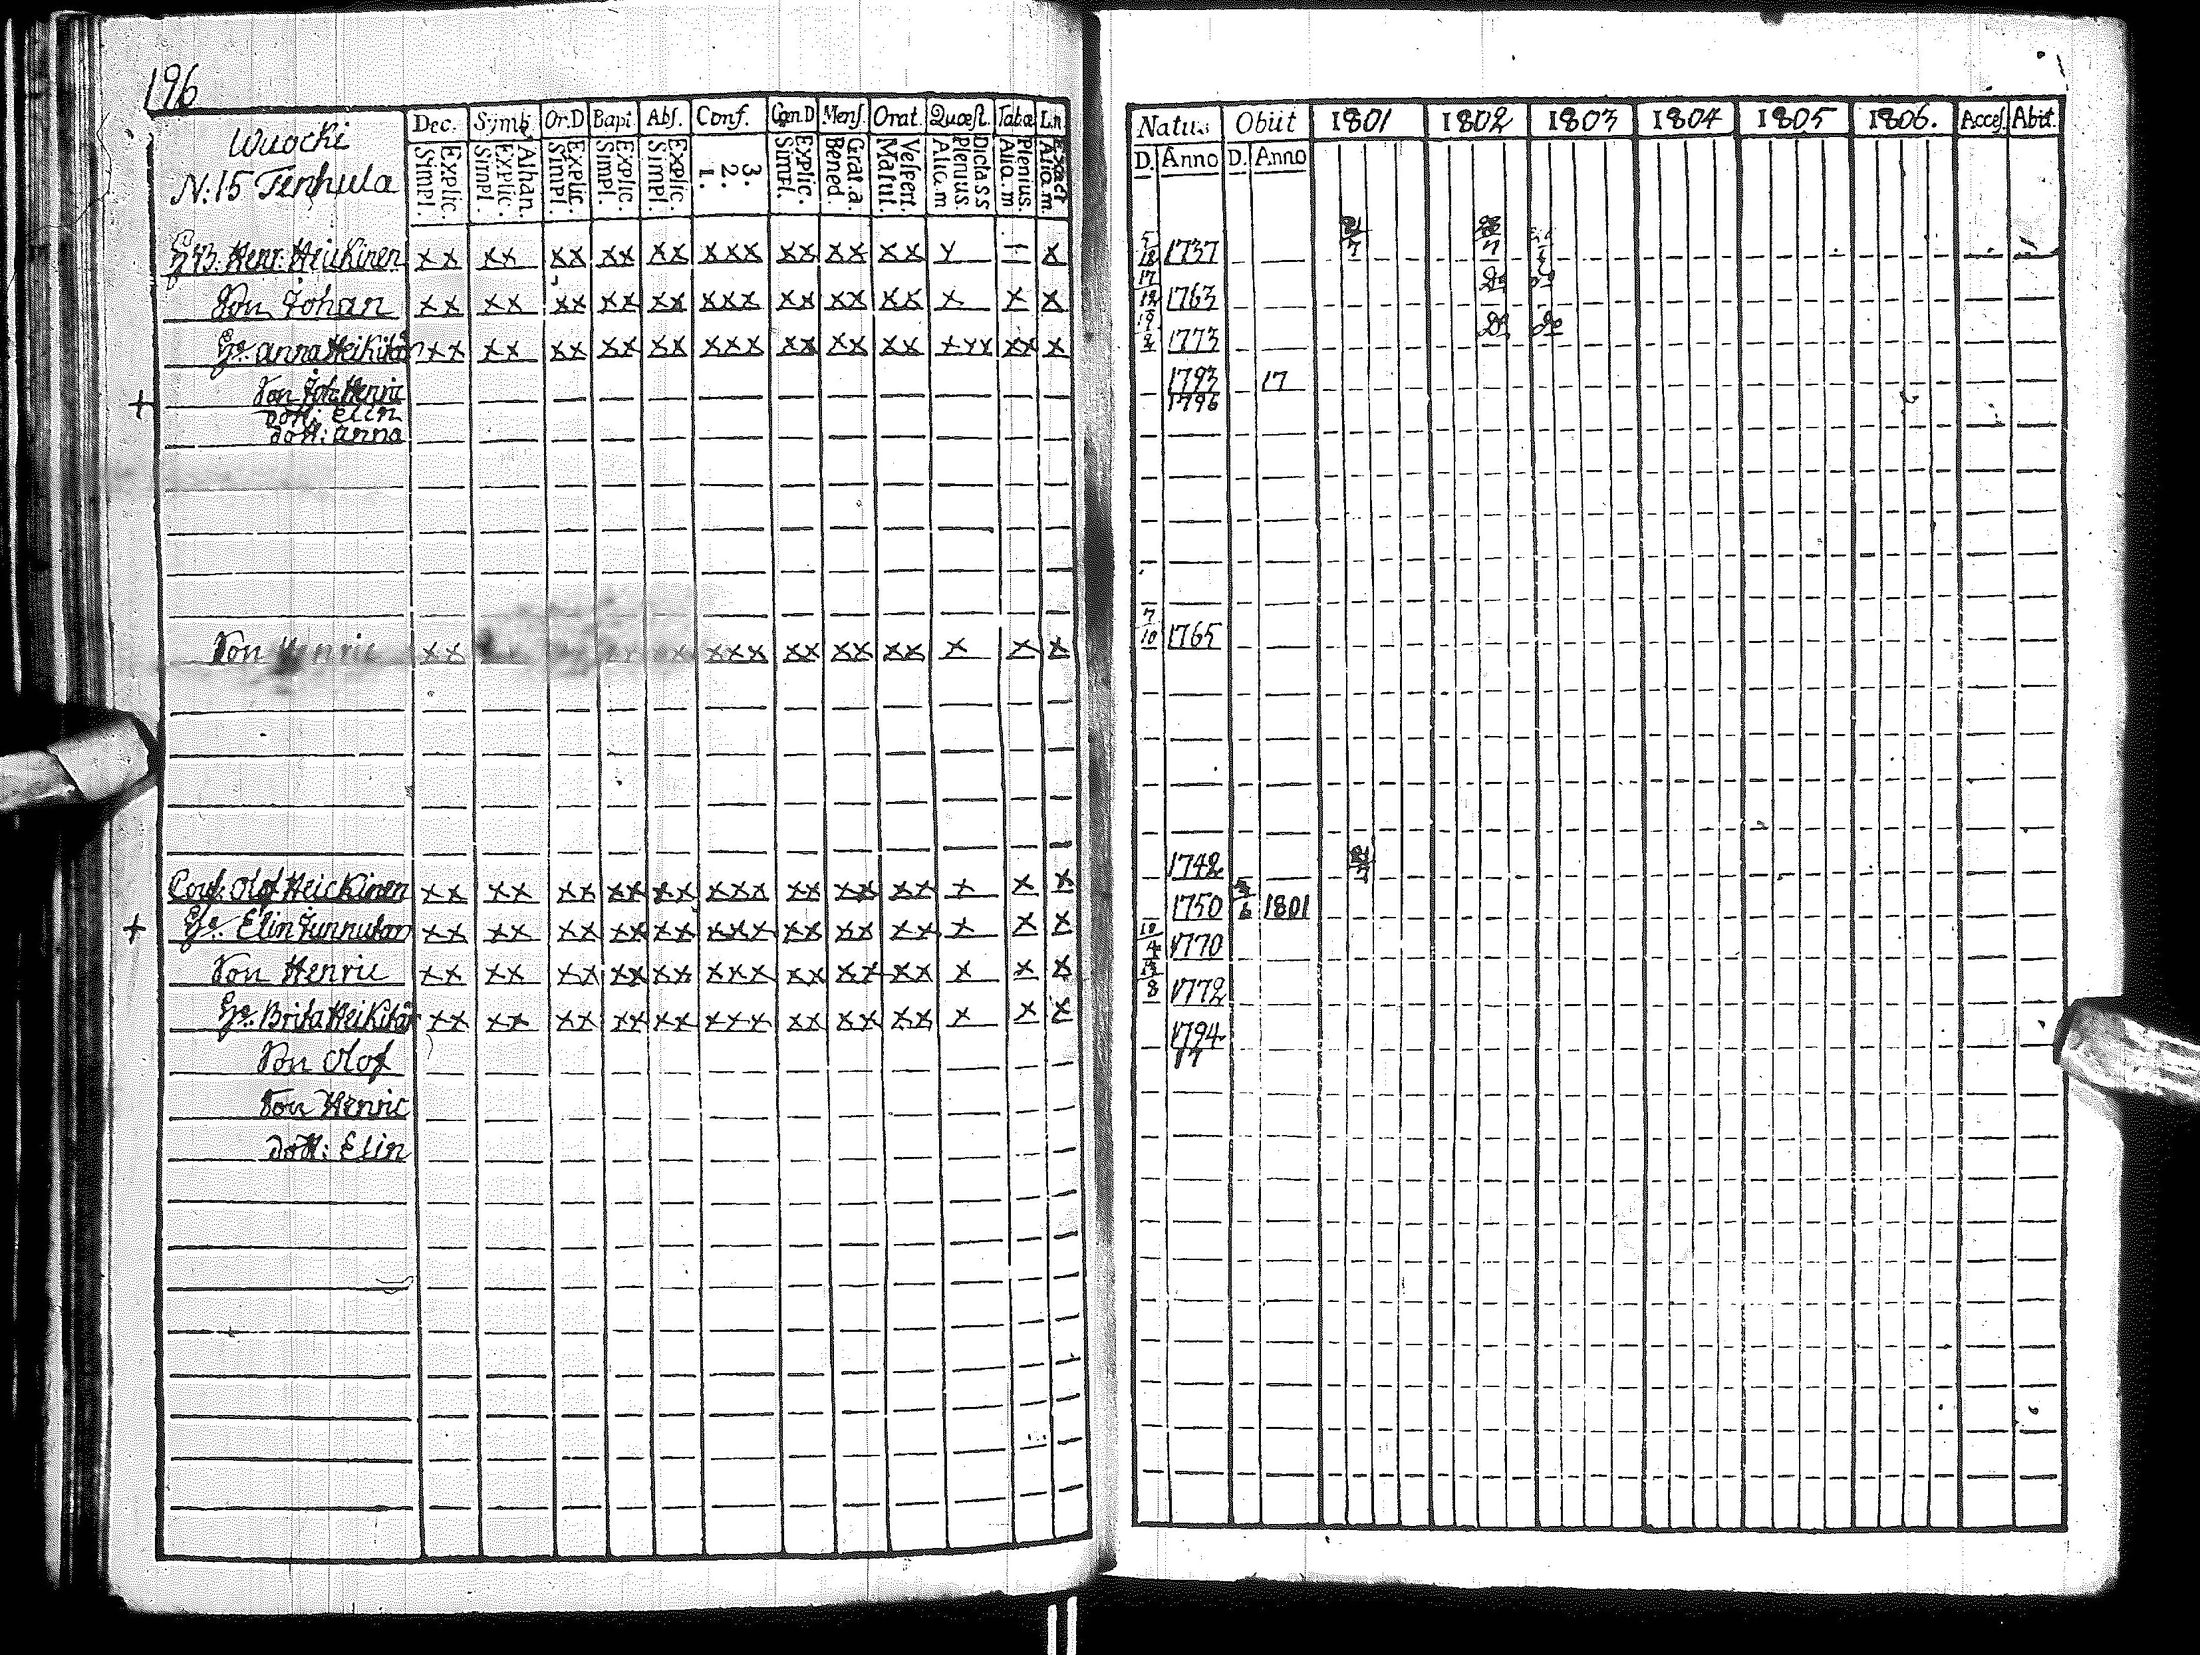 196
Wuocki
N:15 Tenhula
Dec. Symb. Or.D Bapt. Abſ. Conf. Cœn.D Menſ. Orat. Quæſt. Tabæ Ln
Explic. Simpl. Athan. Explic. Simpl. Explic. Simpl. Explic. Simpl. Explic. Simpl. 3. 2. 1. Explic. Simpl. Grat.a. Bened. Veſpert. Matut. Dictass Plenius. Aliq.m Plenius. Aliq.m Exact Aliq.m
Natus Obiit 1801 1802 1803 1804 1805 1806. Acceſ. Abit.
D. Anno D. Anno
Henr. Heickinen xx xx xx xx xx xxx xx xx xx x — x 5/12 1737
Son Johan xx xx xx xx xx xxx xx xx xx x x x 17/12 1763
H:o Anna Heikitar xx xx xx xx xx xxx xx xx xx xxx xx x 19/2 1773
+ Son Joh: Henric 1793 17
dott: Elin 1796
dott: Anna
Son Henric xx xxx xx xx xx x x x 7/10 1765
Olof Heickinen xx xx xx xx xx xxx xx xx xx x x x 1742
+ H:o Elin xx xx xx xx xx xxx xx xx xx x x x 1750 1801
Son Henric xx xx xx xx xx xxx xx xx xx x x x 1770
H:o Brita Heikitar xx xx xx xx xx xxx xx xx xx x x x 1772
Son Olof 1794
Son Henric 17
dott: Elin